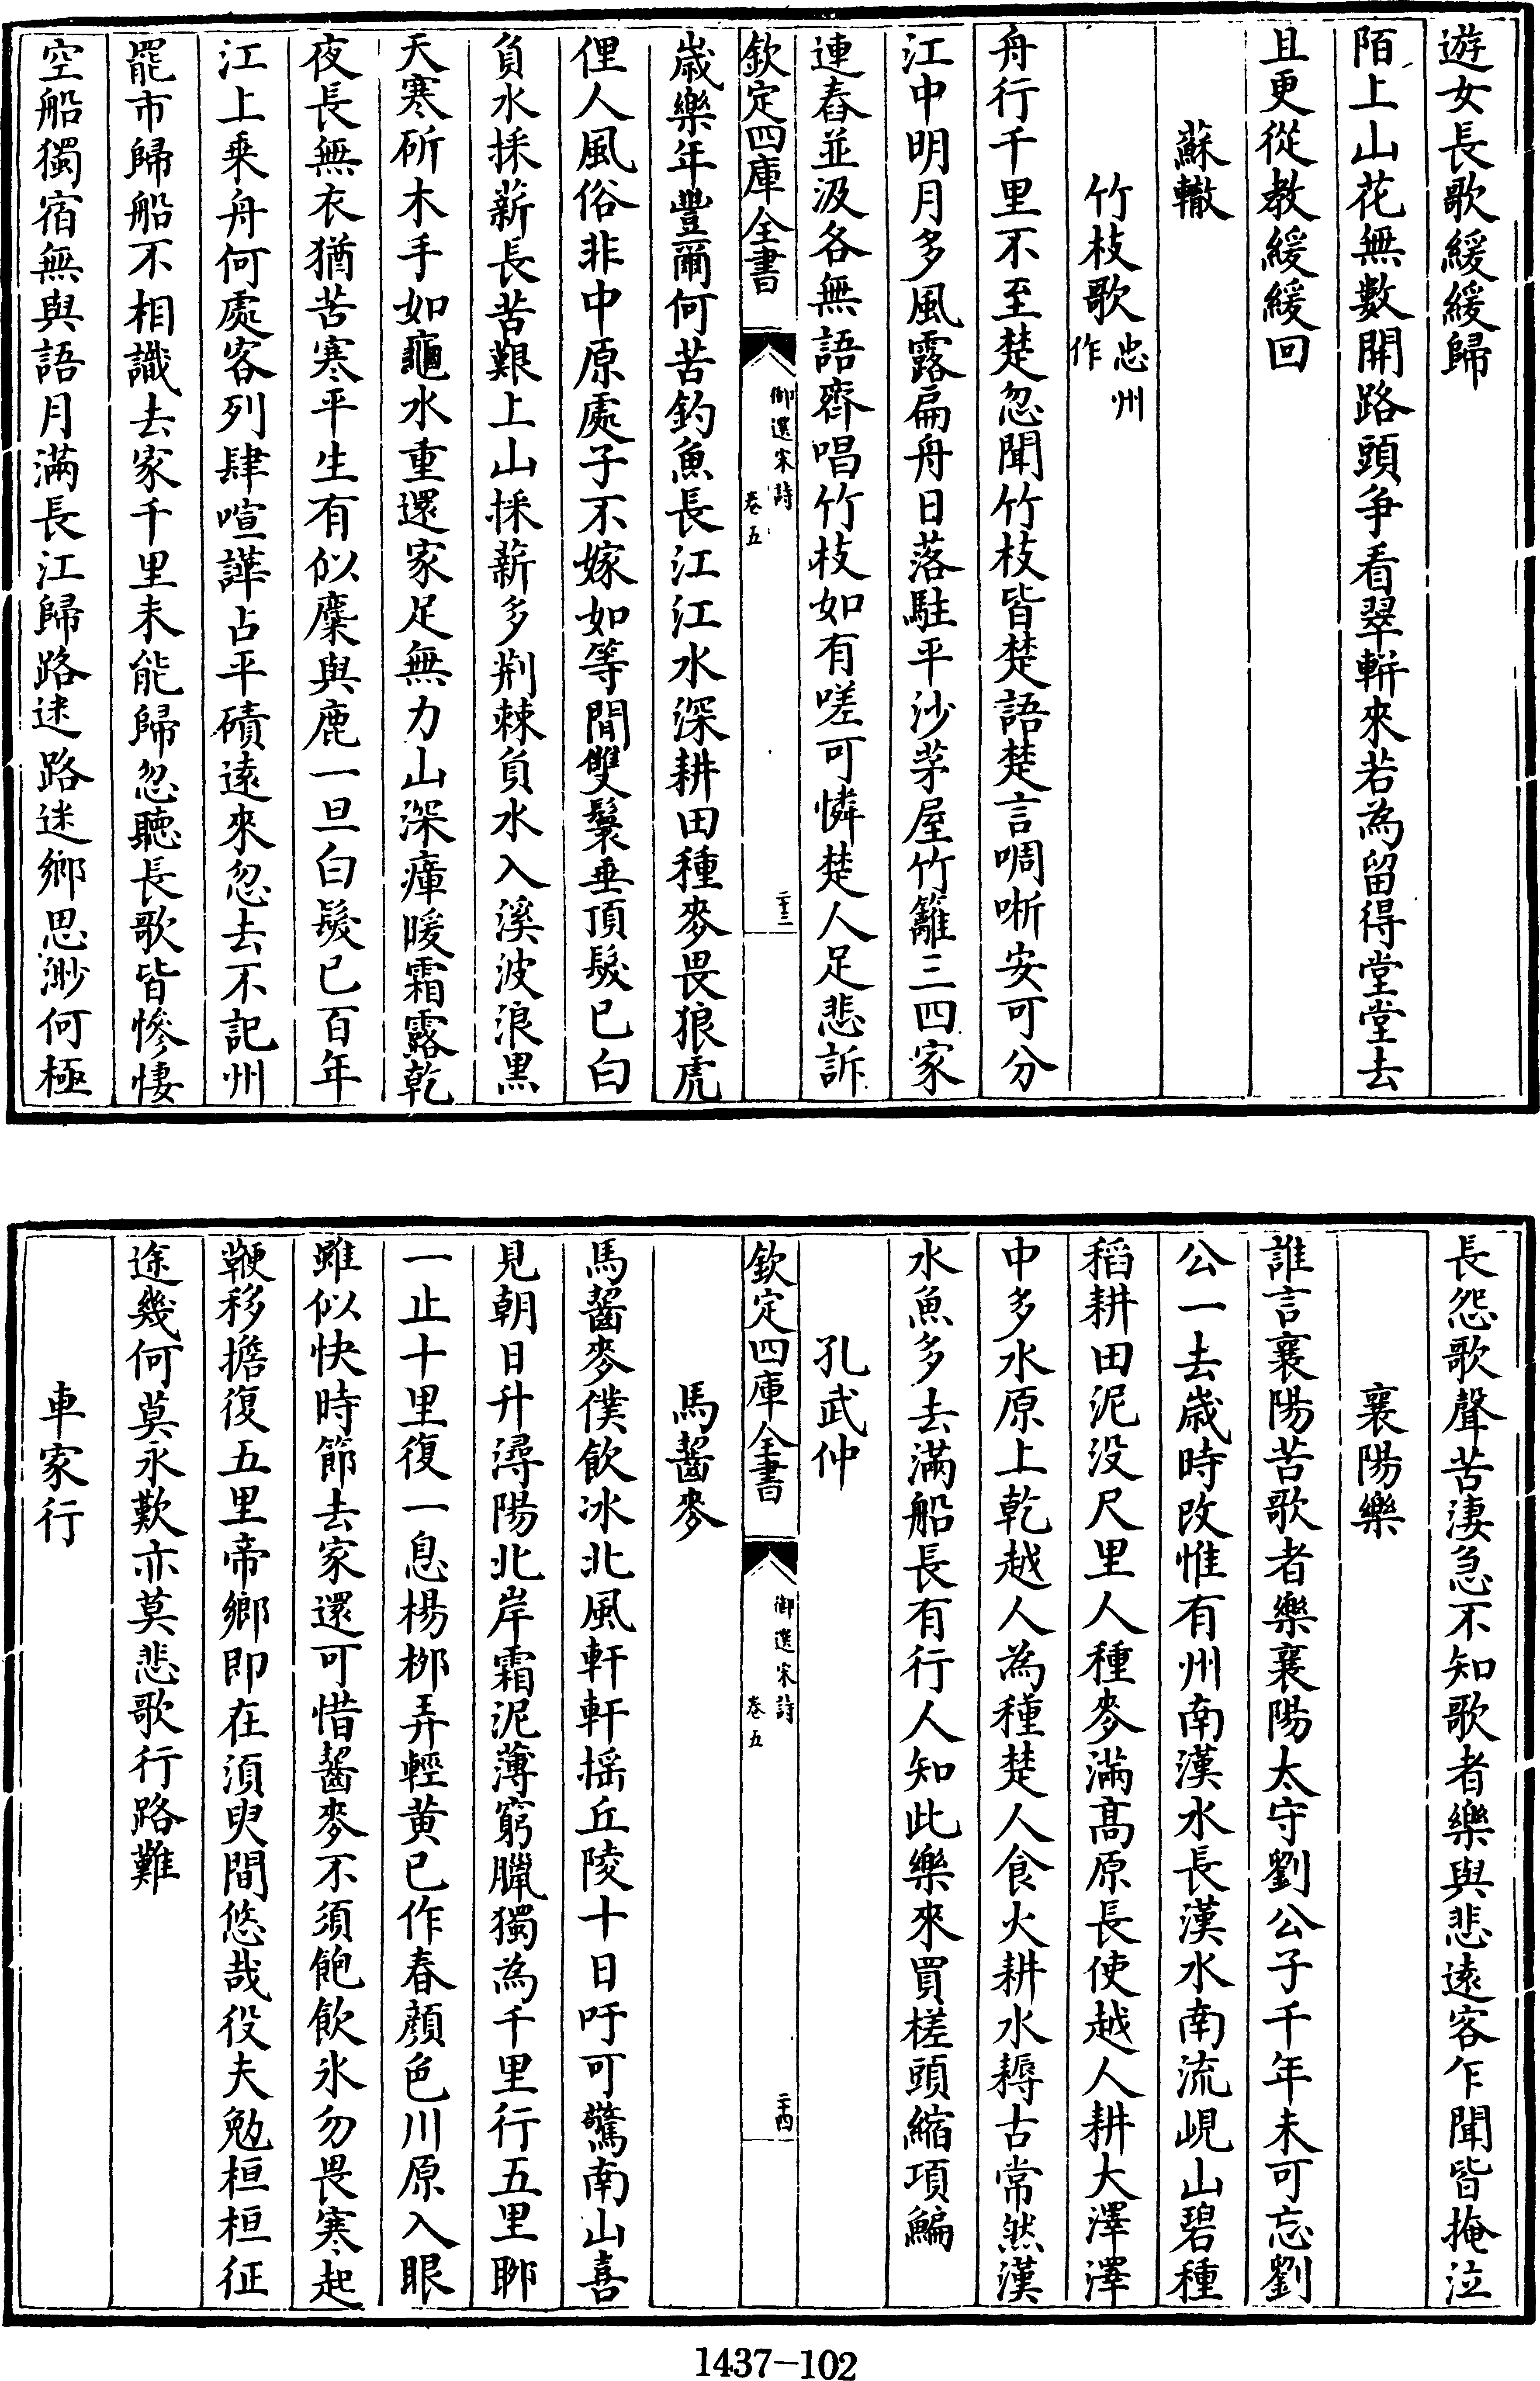 遊女長歌緩緩歸
陌上山花無數開路頭爭看翠軿來若為留得堂堂去
且更從教緩緩回
蘇轍
竹枝歌忠州作
舟行千里不至楚忽聞竹枝皆楚語楚言啁哳安可分
江中明月多風露扁舟日落駐平沙茅屋竹籬三四家
連舂並汲各無語齊唱竹枝如有嗟可憐楚人足悲訴
欽定四庫全書
御選宋詩
卷五
二十三
歲樂年豐爾何苦釣魚長江江水深耕田種麥畏狼虎
俚人風俗非中原處子不嫁如等閒雙鬟垂頂髮已白
負水採薪長苦艱上山採薪多荆棘負水入溪波浪黑
天寒斫木手如龜水重還家足無力山深瘴暖霜露乾
夜長無衣猶苦寒平生有似麋與鹿一旦白髮已百年
江上乘舟何處客列肆喧譁占平磧遠來忽去不記州
罷市歸船不相識去家千里未能歸忽聽長歌皆慘悽
空船獨宿無與語月滿長江歸路迷路迷鄉思渺何極
長怨歌聲苦淒急不知歌者樂與悲遠客乍聞皆掩泣
襄陽樂
誰言襄陽苦歌者樂襄陽太守劉公子千年未可忘劉
公一去歲時改惟有州南漢水長漢水南流峴山碧種
稻耕田泥没尺里人種麥滿高原長使越人耕大澤澤
中多水原上乾越人為種楚人食火耕水耨古常然漢
水魚多去滿船長有行人知此樂來買槎頭縮項鯿
孔武仲
欽定四庫全書
御選宋詩
卷五
二十四
馬齧麥
馬齧麥僕飲冰北風軒軒揺丘陵十日吁可驚南山喜
見朝日升潯陽北岸霜泥薄窮臘獨為千里行五里聊
一止十里復一息楊柳弄輕黄已作春顔色川原入眼
雖似快時節去家還可惜齧麥不須飽飲氷勿畏寒起
鞭移擔復五里帝鄉即在須臾間悠哉役夫勉桓桓征
途幾何莫永歎亦莫悲歌行路難
車家行
1437—102